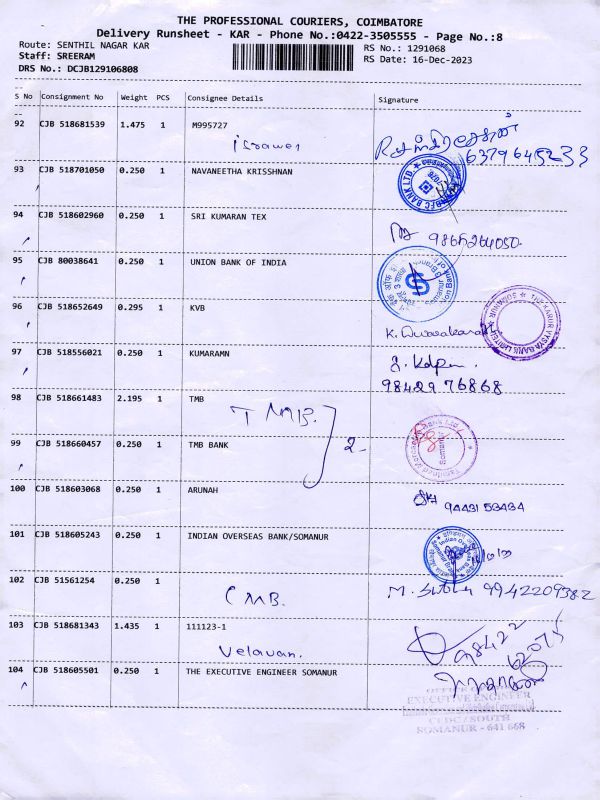 THE PROFESSIONAL COURIERS, COIMBATORE
Delivery Runsheet - KAR - Phone No.:0422-3505555 - Page No.:8
Route: SENTHIL NAGAR KAR
RS No.: 1291068
Staff: SREERAM
RS Date: 16-Dec-2023
DRS No.: DCJB129106808
S No Consignment No Weight PCS Consignee Details Signature
92 CJB 518681539 1.475 1 M995727
6379645233
93 CJB 518701050 0.250 1 NAVANEETHA KRISSHNAN
94 CJB 518602960 0.250 1 SRI KUMARAN TEX
95 CJB 80038641 0.250 1 UNION BANK OF INDIA
96 CJB 518652649 0.295 1 KVB
97 CJB 518556021 0.250 1 KUMARAMN
98429 76868
98 CJB 518661483 2.195 1 TMB
TMB.
99 CJB 518660457 0.250 1 TMB BANK
2
100 CJB 518603068 0.250 1 ARUNAH
94431 53434
101 CJB 518605243 0.250 1 INDIAN OVERSEAS BANK/SOMANUR
102 CJB 51561254 0.250 1
CMB.
9942209382
103 CJB 518681343 1.435 1 111123-1
Velavan.
104 CJB 518605501 0.250 1 THE EXECUTIVE ENGINEER SOMANUR
EXECUTIVE ENGINEER
CEDC/SOUTH
SOMANUR - 641 668